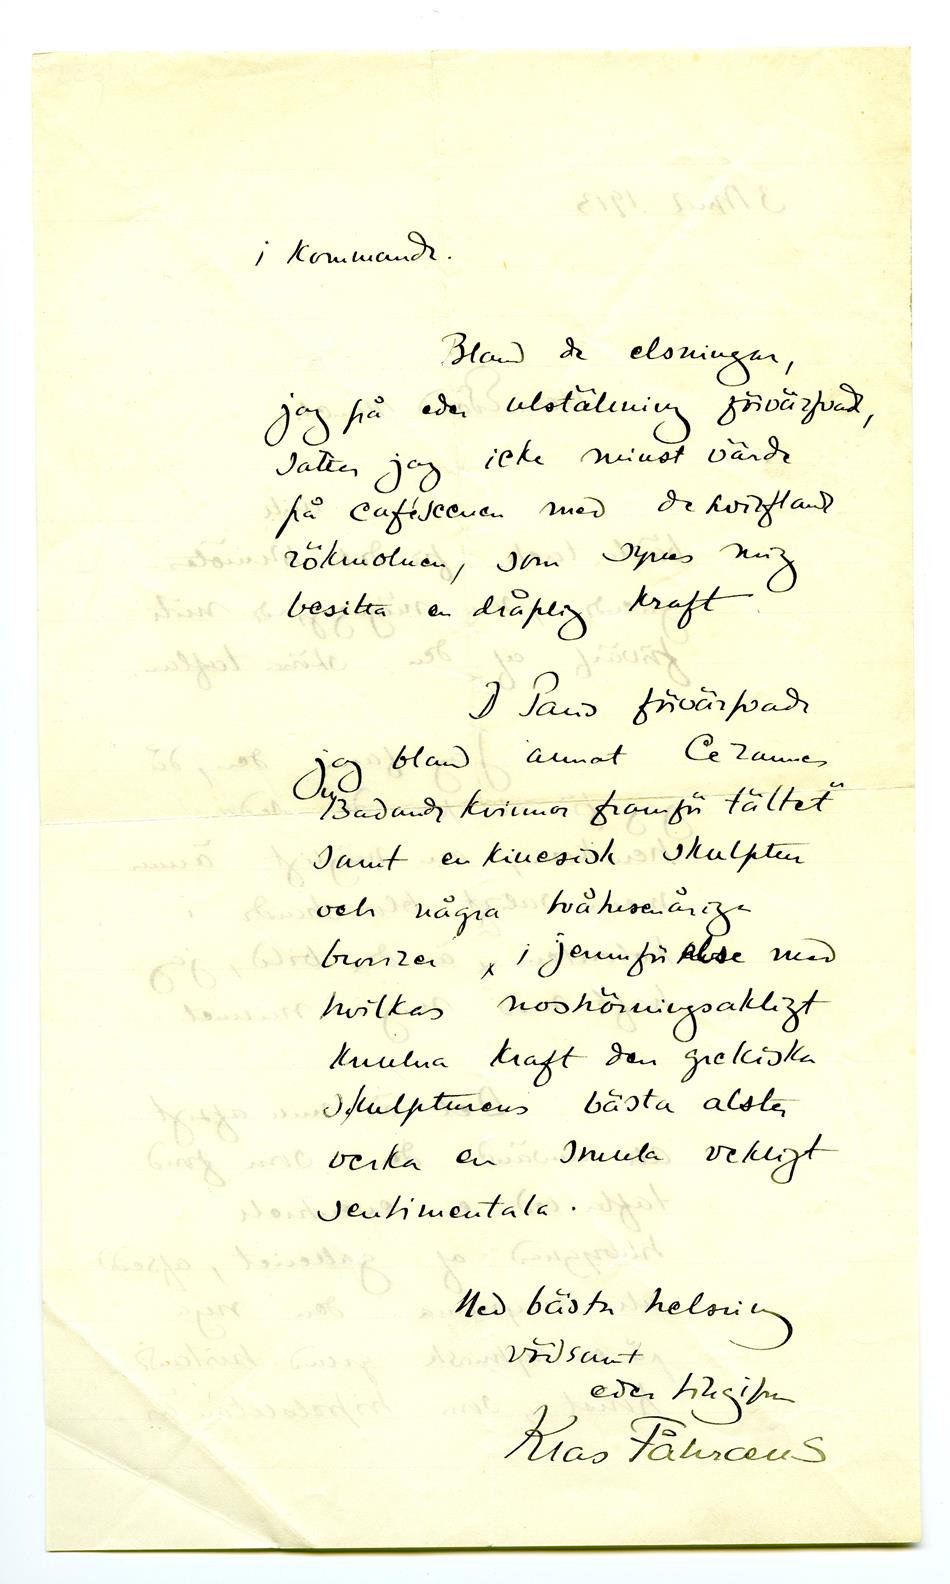 i kommande.
Bland de etsningar,
jag på eder utställning förvärfvade,
sätter jag icke minst värde
på caféscenen med de hvirflande
rökmolnen, som synes mig
besitta en dråplig kraft
I Paris förvärfvade
jag bland annat Cezannes
"Badande kvinnor framför tältet"
samt en kinesisk skulptur
och några tvåtusenåriga
bronzer, i jemnförelse med
hvilkas noshörningsaktigt
knutna kraft den grekiska
skulpturens bästa alster
verka en smula vekligt
sentimentala.
Med bästa helsning
vördsamt
eder tillgifne
Klas Fåhræus